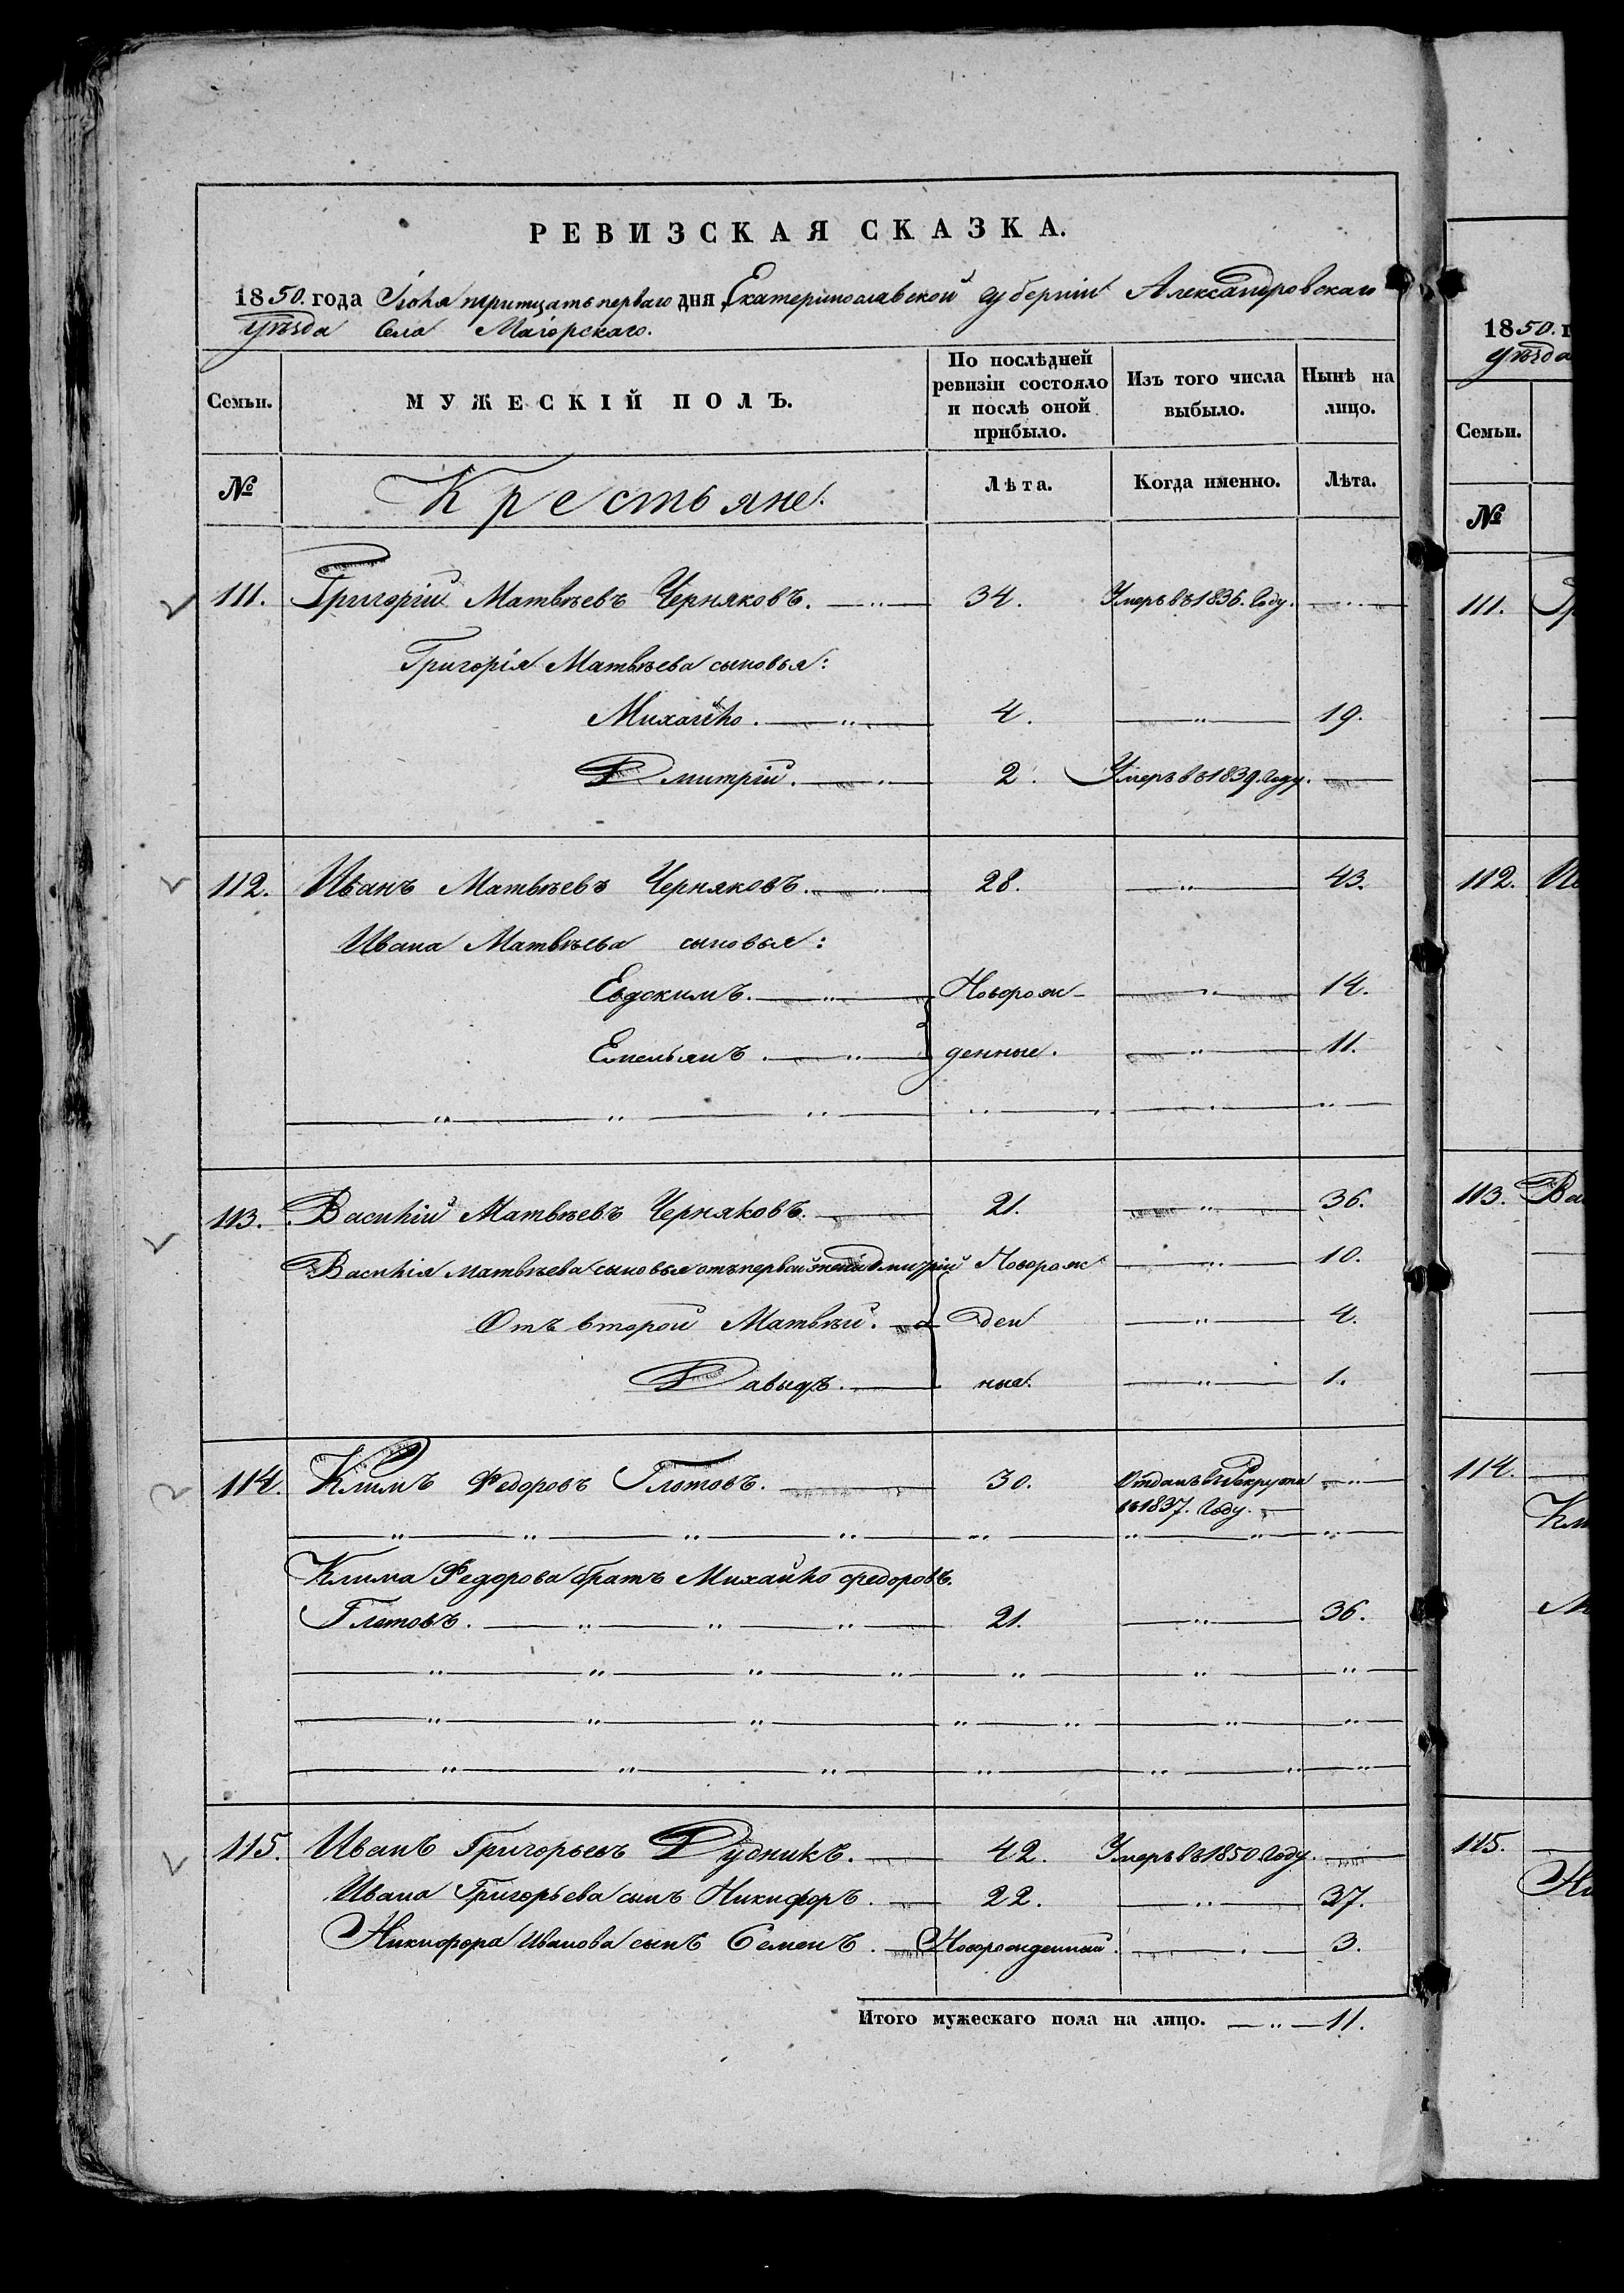 РЕВИЗСКАЯ СКАЗКА.
1850. года Іюля тритцать перваго дня Екатеринославской губерніи Александровскаго
уѣзда Села Магорскаго.
Семьи. МУЖЕСКІЙ ПОЛЪ. По послѣдней ревизіи состояло и послѣ оной прибыло. Изъ того числа выбыло. Нынѣ на лицо.
№ Крестьяне. Лѣта. Когда именно. Лѣта.
111. Григорій Матвѣевъ Черняковъ. 34. Умеръ въ 1836. Году.
Григорія Матвѣева сыновья:
Михайло. 4. 19.
Дмитрій. 2. Умеръ въ 1839. Году.
112. Иванъ Матвѣевъ Черняковъ. 28. 43.
Ивана Матвѣева сыновья:
Евдокимъ. Новорож- 14.
Емельянъ. денные. 11.
113. Василій Матвѣевъ Черняковъ. 21. 36.
Василія Матвѣева сыновья отъ первой жены Дмитрій Новорож 10.
Отъ второй Матвѣй. ден 4.
Давыдъ. ныя. 1.
114. Климъ Федоровъ Глотовъ. 30. Отданъ въ Рекрута
въ 1837. Году.
Клима Федорова братъ Михайло Федоровъ.
Глотовъ. 21. 36.
115. Иванъ Григорьевъ Дудникъ. 42. Умеръ въ 1850 Году.
Ивана Григорьева сынъ Никифоръ. 22. 37.
Никифора Иванова сынъ Семенъ. Новорожденный. 3.
Итого мужескаго пола на лицо. 11.
1850. г
уѣзда
Семьи.
№
111.
112.
113. Ва
114.
Кл
115.